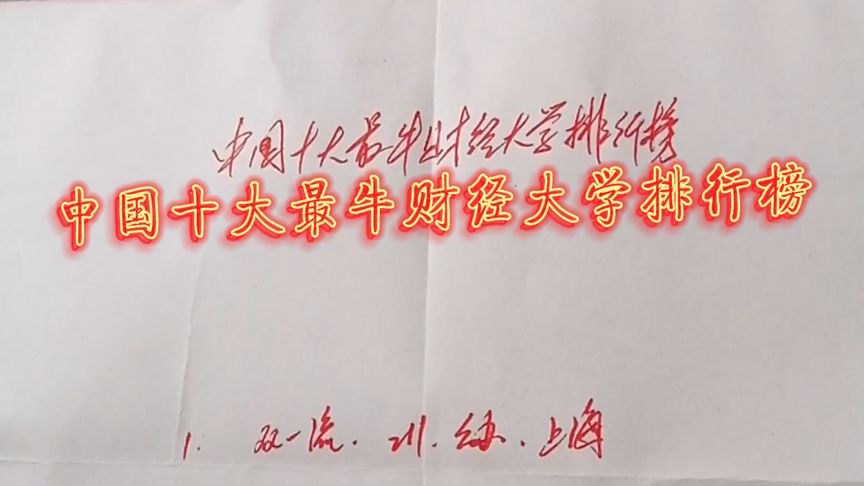 中国十大最牛财经大学排行榜
中国十大最牛财经大学排行榜
1. 双一流. 211. 公办. 上海